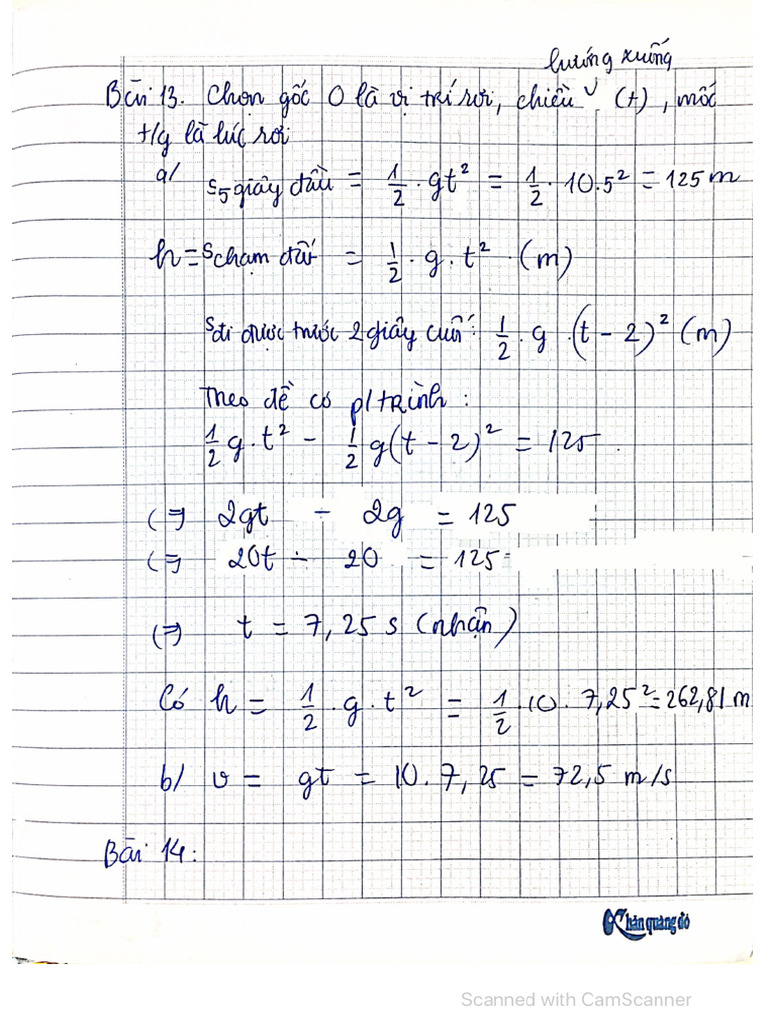 hướng xuống
Bài 13. Chọn gốc O là vị trí rơi, chiều ∨ (+), mốc
t/g là lúc rơi
a/ S5 giây đầu = 1/2 . gt² = 1/2 . 10.5² = 125 m
h = S chạm đất = 1/2 . g . t² . (m)
S đi được trước 2 giây cuối : 1/2 . g . (t - 2)² (m)
Theo đề có p/trình :
1/2 g . t² - 1/2 g(t - 2)² = 125 .
(⇒ 2gt - 2g = 125
(⇒ 20t - 20 = 125
(⇒ t = 7,25 s (nhận)
Có h = 1/2 . g . t² = 1/2 . 10 . 7,25² = 262,81 m
b/ v = gt = 10 . 7,25 = 72,5 m/s
Bài 14 :
Khăn quàng đỏ
Scanned with CamScanner